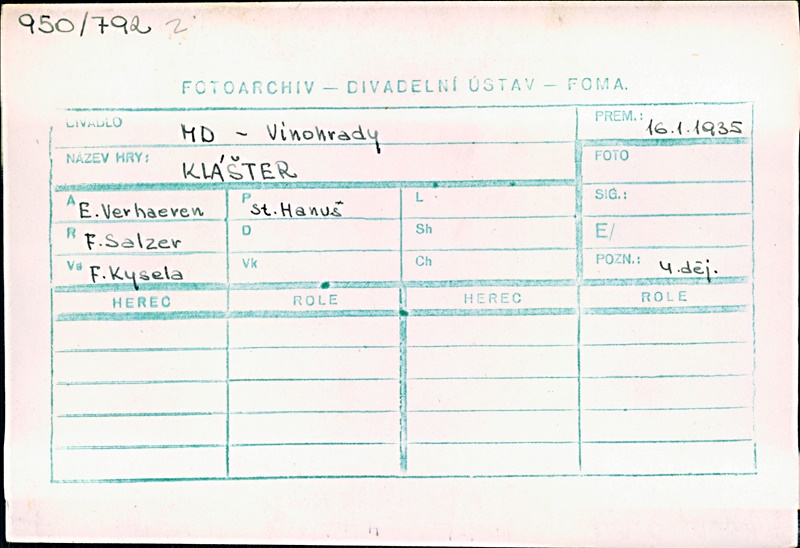 950/792 2
FOTOARCHIV — DIVADELNÍ ÚSTAV — FOMA.
DIVADLO MD - Vinohrady
PREM.: 16.1.1935
NÁZEV HRY: KLÁŠTER
FOTO
A E. Verhaeven P St. Hanuš L
SIG.:
R F. Salzer D Sh
E/
Va F. Kysela Vk Ch
POZN.: 4.děj.
HEREC ROLE HEREC ROLE